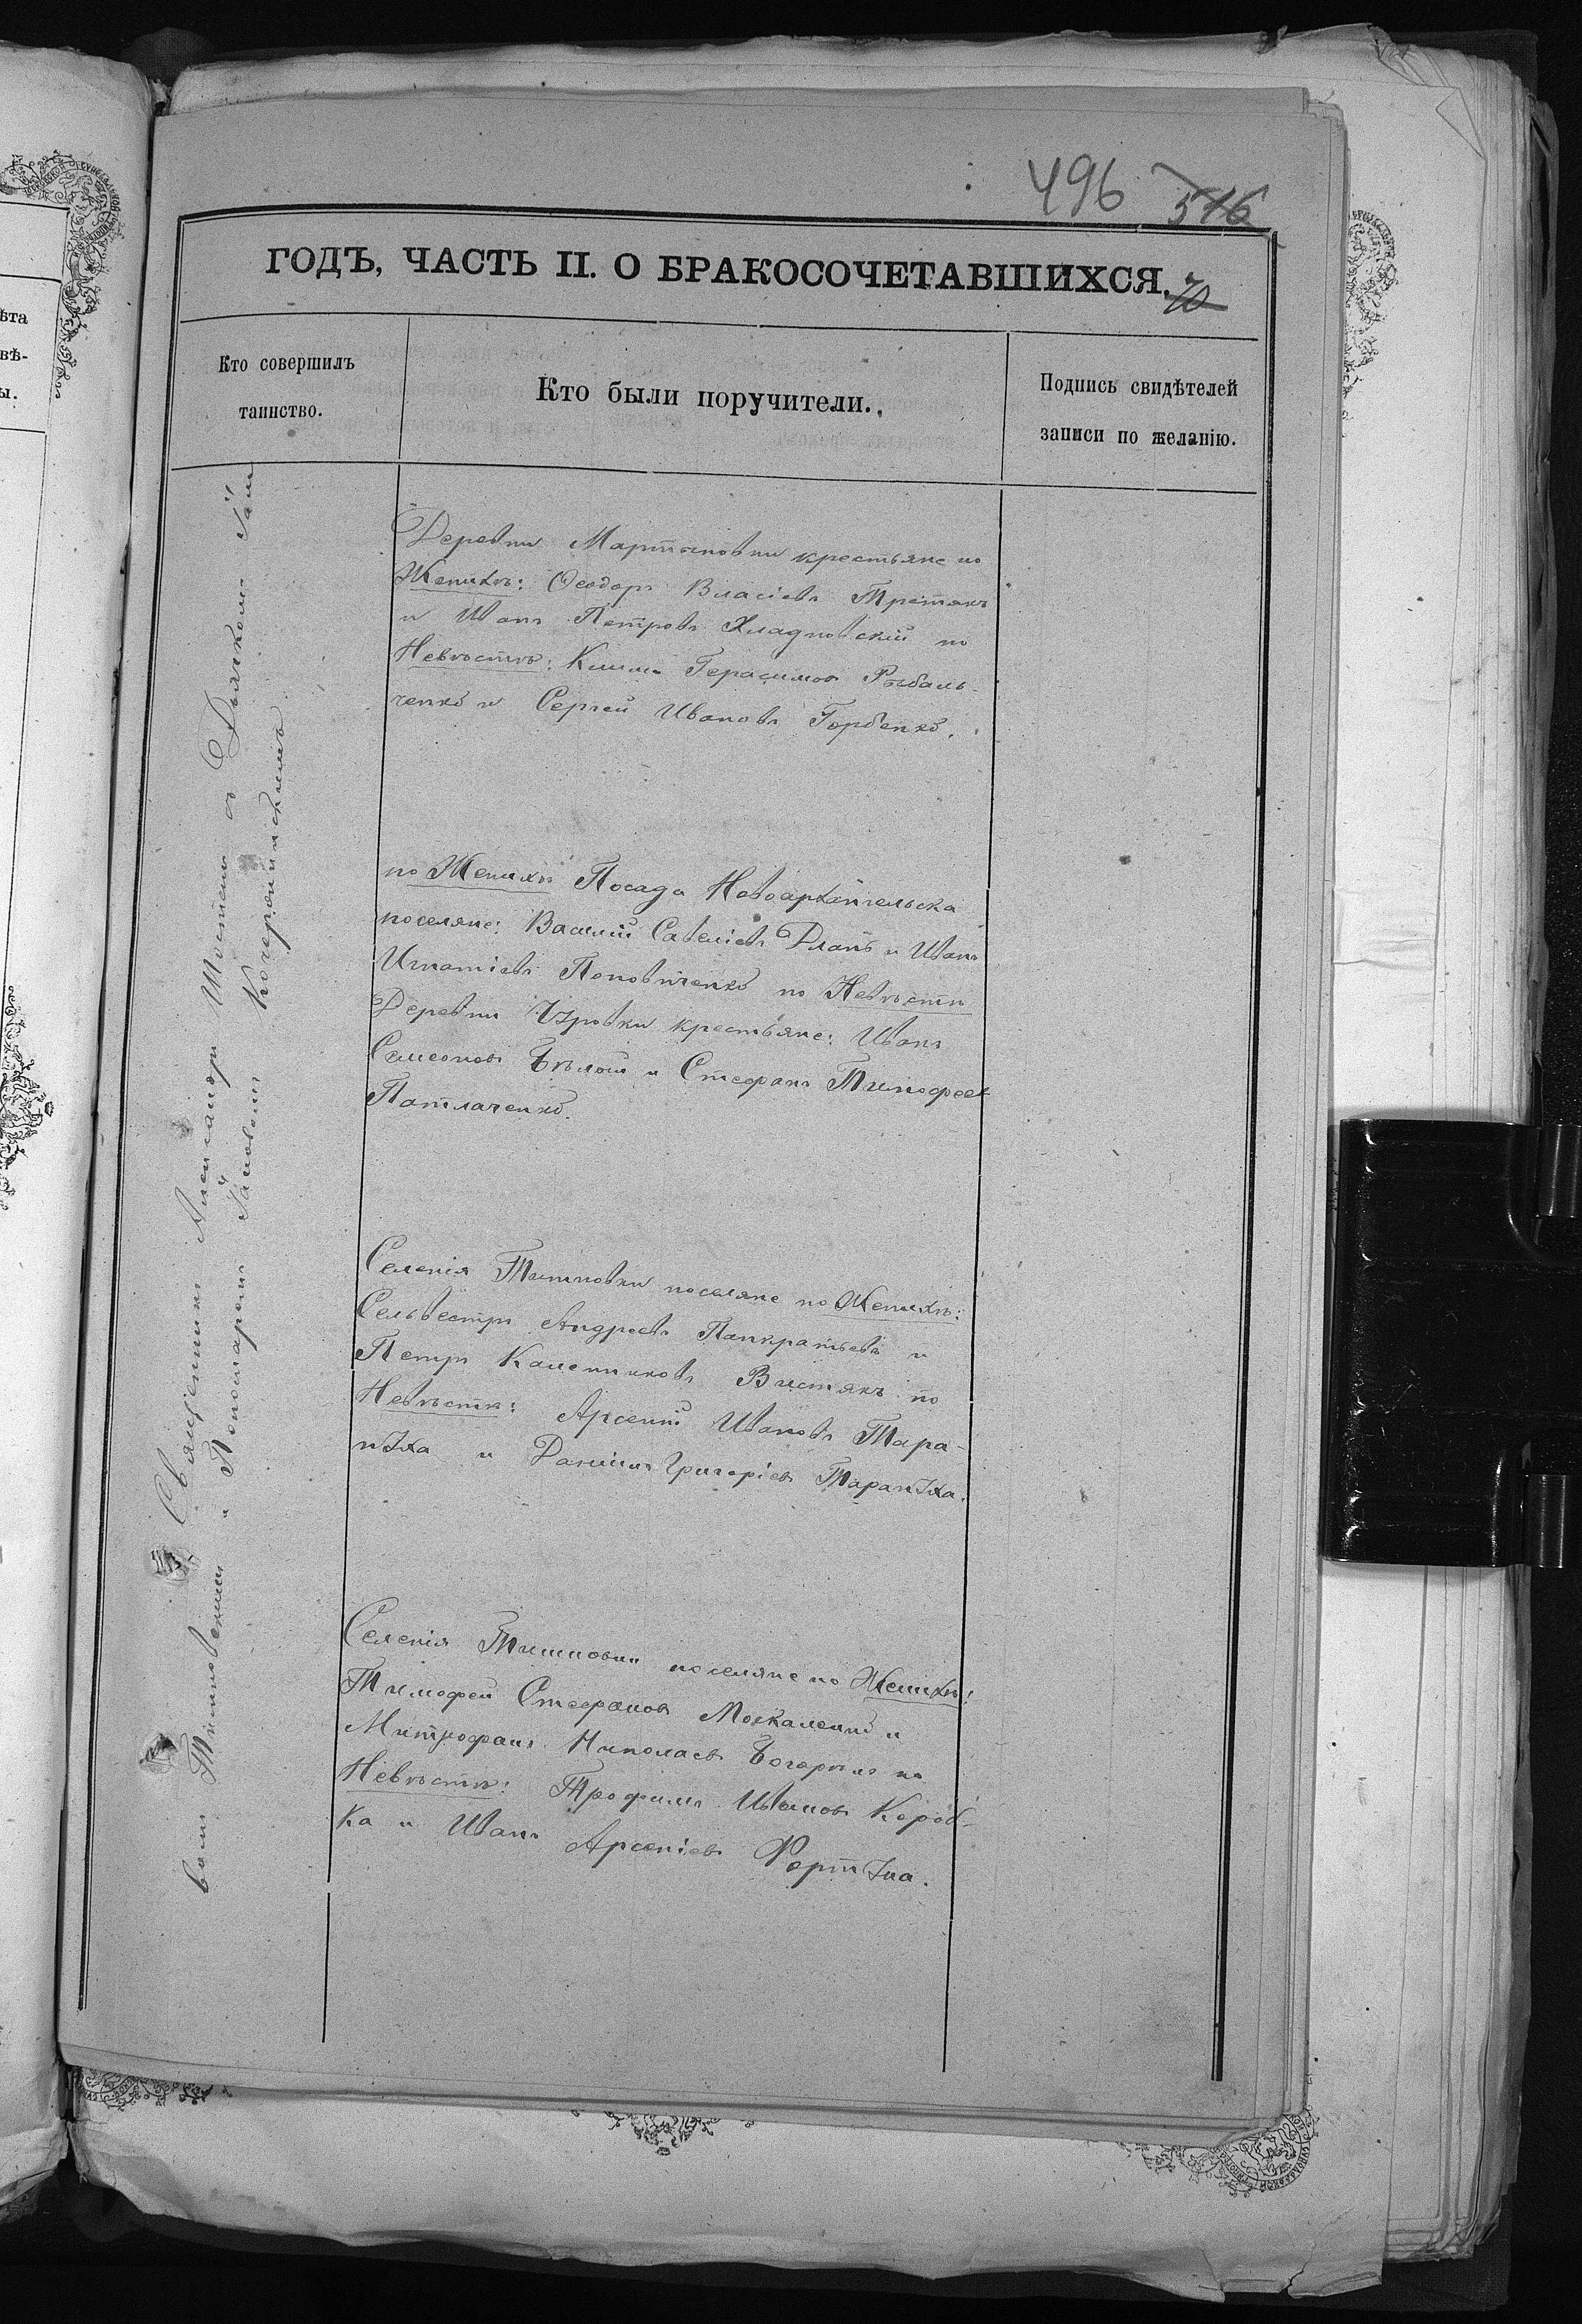 496 516
ГОДЪ, ЧАСТЬ II. О БРАКОСОЧЕТАВШИХСЯ.
70
Кто совершилъ
таинство.
Кто были поручители.
Подпись свидѣтелей
записи по желанію.
Священникъ Александръ Шостетъ съ Дьячкомъ
и Пономаремъ
Деревни Мартыновки крестьяне по
Женихѣ: Ѳеодоръ Власіевъ Третякъ
и Иванъ Петровъ Хладновскій по
Невѣстѣ: Климъ Герасимовъ Рыбаль-
ченко и Сергей Ивановъ Горбенко.
по Женихѣ Посада Новоархангельска
поселяне: Василій Савеліевъ Дланъ и Иванъ
Игнатіевъ Поповиченко по Невѣсти
Деревни крестьяне: Иванъ
Симеоновъ Бѣлой и Стефанъ Тимофеев
Патлаченко.
Селенія Тишковки поселяне по Женихѣ:
Сельвестръ Андреевъ Панкратьевъ и
Петръ Калениковъ Вистякъ по
Невѣстѣ: Арсений Ивановъ Тара-
нУха и Даниилъ Григоріевъ ТаранУха.
Селенія Тишковки поселяне по Женихѣ:
Тимофей Стефановъ Москаленко и
Митрофанъ Николаевъ по
Невѣстѣ: Трофимъ Ивановъ Короб-
ка и Иванъ Арсеніевъ ФортУна.